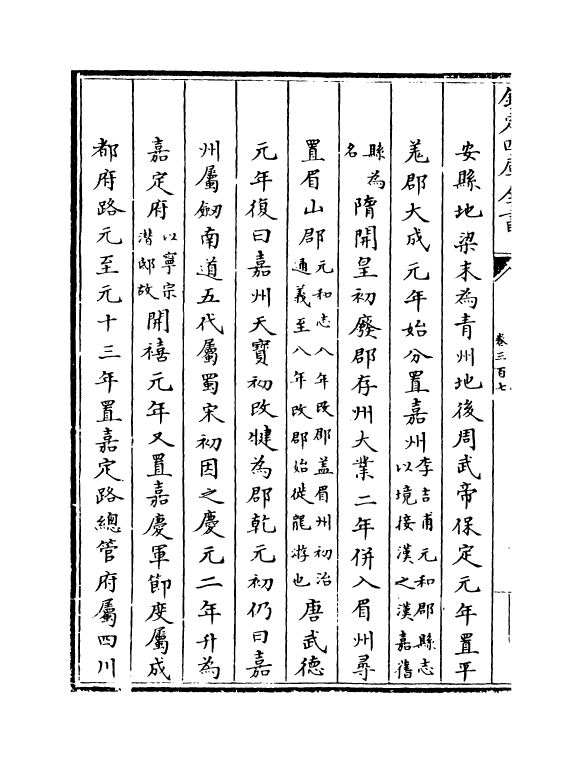 欽定四庫全書
卷三百七
安縣地梁末為青州地後周武帝保定元年置平
羗郡大成元年始分置嘉州李吉甫元和郡縣志以境接漢之漢嘉舊
縣為名隋開皇初廢郡存州大業二年併入眉州尋
置眉山郡元和志八年改郡蓋眉州初治通義至八年改郡始徙龍游也唐武德
元年復曰嘉州天寶初改犍為郡乾元初仍曰嘉
州屬劔南道五代屬蜀宋初因之慶元二年升為
嘉定府以寧宗潛邸故開禧元年又置嘉慶軍節度屬成
都府路元至元十三年置嘉定路總管府屬四川